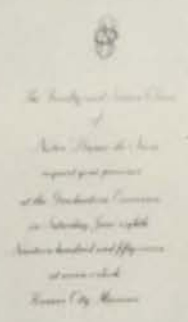 The Faculty and Senior Class
of
Notre Dame de Sion
request your presence
at the Graduation Exercises
on Saturday, June eighth
Nineteen hundred and fifty-seven
at seven o'clock
Kansas City, Missouri